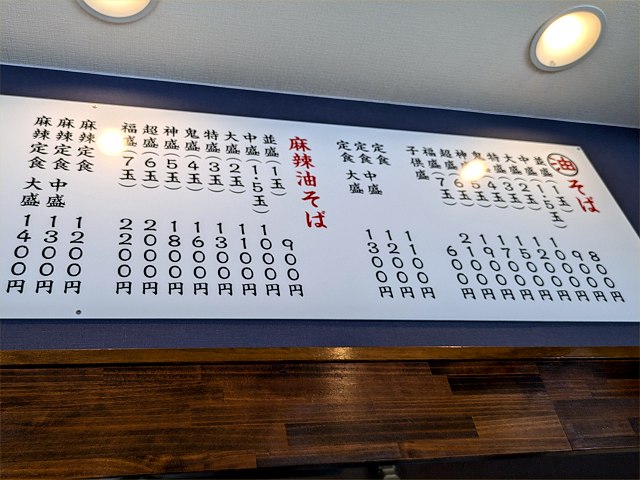 油そば
並盛(1玉) 800円
中盛(1.5玉) 900円
大盛(2玉) 1000円
特盛(3玉) 1200円
鬼盛(4玉) 1500円
神盛(5玉) 1700円
超盛(6玉) 1900円
福盛(7玉) 2100円
子供盛 600円
定食 1100円
定食 中盛 1200円
定食 大盛 1300円
麻辣油そば
並盛(1玉) 900円
中盛(1.5玉) 1000円
大盛(2玉) 1100円
特盛(3玉) 1300円
鬼盛(4玉) 1600円
神盛(5玉) 1800円
超盛(6玉) 2000円
福盛(7玉) 2200円
麻辣定食 1200円
麻辣定食 中盛 1300円
麻辣定食 大盛 1400円